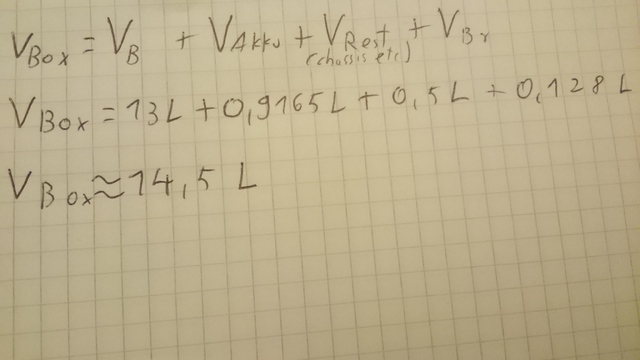 V_Box = V_B + V_Akku + V_Rest + V_Br
(chassis etc)
V_Box = 13L + 0,9165L + 0,5L + 0,128L
V_Box ≈ 14,5 L